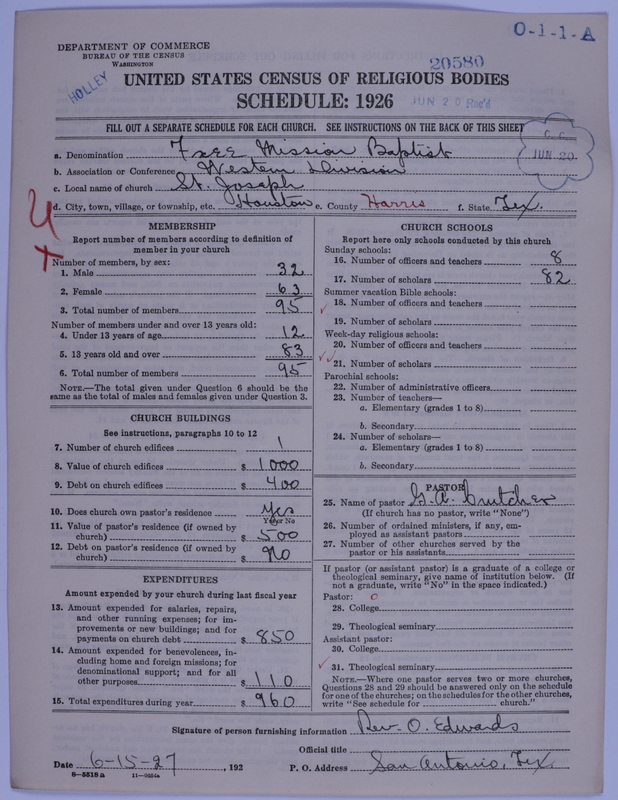 O-1-1-A
DEPARTMENT OF COMMERCE
BUREAU OF THE CENSUS
WASHINGTON
HOLLEY
20580
UNITED STATES CENSUS OF RELIGIOUS BODIES
SCHEDULE: 1926
JUN 20 Rec'd
FILL OUT A SEPARATE SCHEDULE FOR EACH CHURCH. SEE INSTRUCTIONS ON THE BACK OF THIS SHEET
C. C.
JUN 20
a. Denomination Free Mission Baptist
b. Association or Conference Western Division
c. Local name of church St. Joseph
d. City, town, village, or township, etc. Houston e. County Harris f. State Tex.
MEMBERSHIP
Report number of members according to definition of
member in your church
Number of members, by sex:
1. Male 32
2. Female 63
3. Total number of members 95
Number of members under and over 13 years old:
4. Under 13 years of age 12
5. 13 years old and over 83
6. Total number of members 95
NOTE.—The total given under Question 6 should be the
same as the total of males and females given under Question 3.
CHURCH BUILDINGS
See instructions, paragraphs 10 to 12
7. Number of church edifices 1
8. Value of church edifices $ 1000
9. Debt on church edifices $ 400
10. Does church own pastor's residence Yes
Yes or No
11. Value of pastor's residence (if owned by
church) $ 500
12. Debt on pastor's residence (if owned by
church) $ no
EXPENDITURES
Amount expended by your church during last fiscal year
13. Amount expended for salaries, repairs,
and other running expenses; for im-
provements or new buildings; and for
payments on church debt $ 850
14. Amount expended for benevolences, in-
cluding home and foreign missions; for
denominational support; and for all
other purposes $ 110
15. Total expenditures during year $ 960
CHURCH SCHOOLS
Report here only schools conducted by this church
Sunday schools:
16. Number of officers and teachers 8
17. Number of scholars 82
Summer vacation Bible schools:
18. Number of officers and teachers
19. Number of scholars
Week-day religious schools:
20. Number of officers and teachers
21. Number of scholars
Parochial schools:
22. Number of administrative officers
23. Number of teachers—
a. Elementary (grades 1 to 8)
b. Secondary
24. Number of scholars—
a. Elementary (grades 1 to 8)
b. Secondary
PASTOR
25. Name of pastor G. A. Crutcher
(If church has no pastor, write "None")
26. Number of ordained ministers, if any, em-
ployed as assistant pastors
27. Number of other churches served by the
pastor or his assistants
If pastor (or assistant pastor) is a graduate of a college or
theological seminary, give name of institution below. (If
not a graduate, write "No" in the space indicated.)
Pastor: O
28. College
29. Theological seminary
Assistant pastor:
30. College
31. Theological seminary
NOTE.—Where one pastor serves two or more churches,
Questions 28 and 29 should be answered only on the schedule
for one of the churches; on the schedules for the other churches,
write "See schedule for church."
Signature of person furnishing information Rev. O. Edwards
Official title
Date 6-15-27, 192 P. O. Address San Antonio, Tex.
8-5518 a 11-9034a